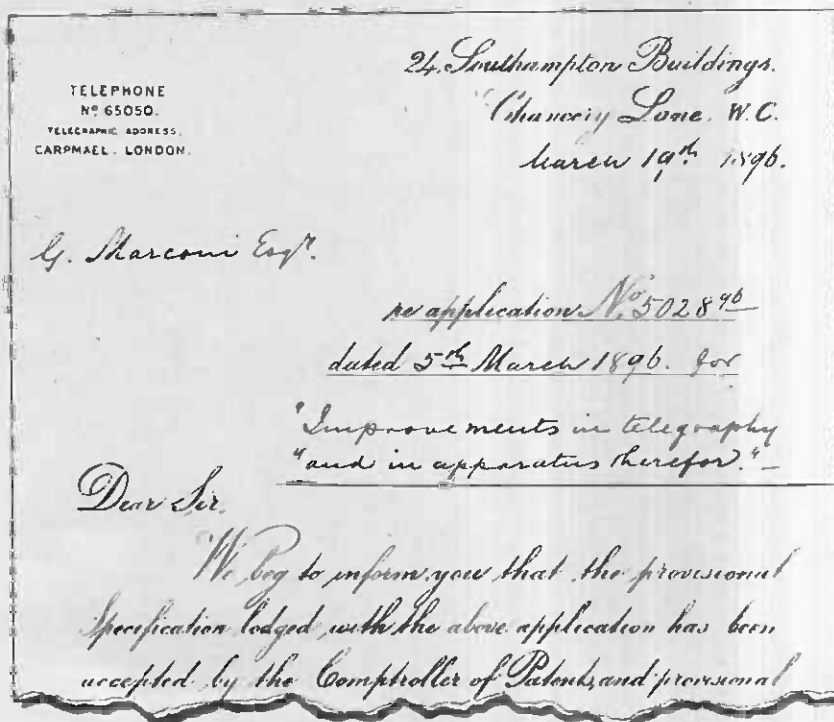 TELEPHONE
Nº 65050.
TELEGRAPHIC ADDRESS,
CARPMAEL. LONDON.
24, Southampton Buildings.
Chancery Lane. W.C.
March 19th 1896.
G. Marconi Esqr.
re application No. 5028 96
dated 5th March 1896. for
"Improvements in telegraphy
"and in apparatus therefor."
Dear Sir.
We beg to inform you that the provisional
Specification lodged with the above application has been
accepted by the Comptroller of Patents, and provisional